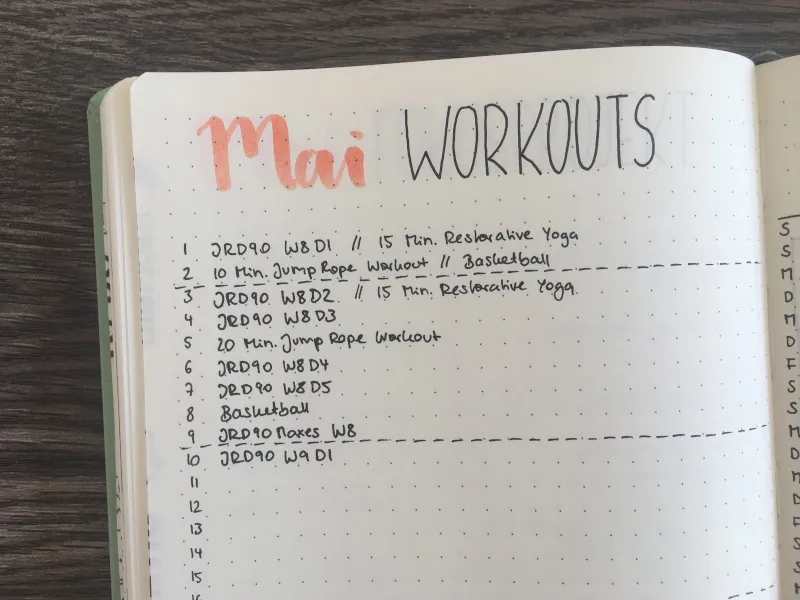 Mai WORKOUTS
1 JRD90 W8D1 // 15 Min. Restorative Yoga
2 10 Min. Jump Rope Workout // Basketball
3 JRD90 W8D2 // 15 Min. Restorative Yoga
4 JRD90 W8D3
5 20 Min. Jump Rope Workout
6 JRD90 W8D4
7 JRD90 W8D5
8 Basketball
9 JRD90 Maxes W8
10 JRD90 W9D1
11
12
13
14
15
S
S
M
D
M
D
F
S
S
M
D
M
D
F
S
S